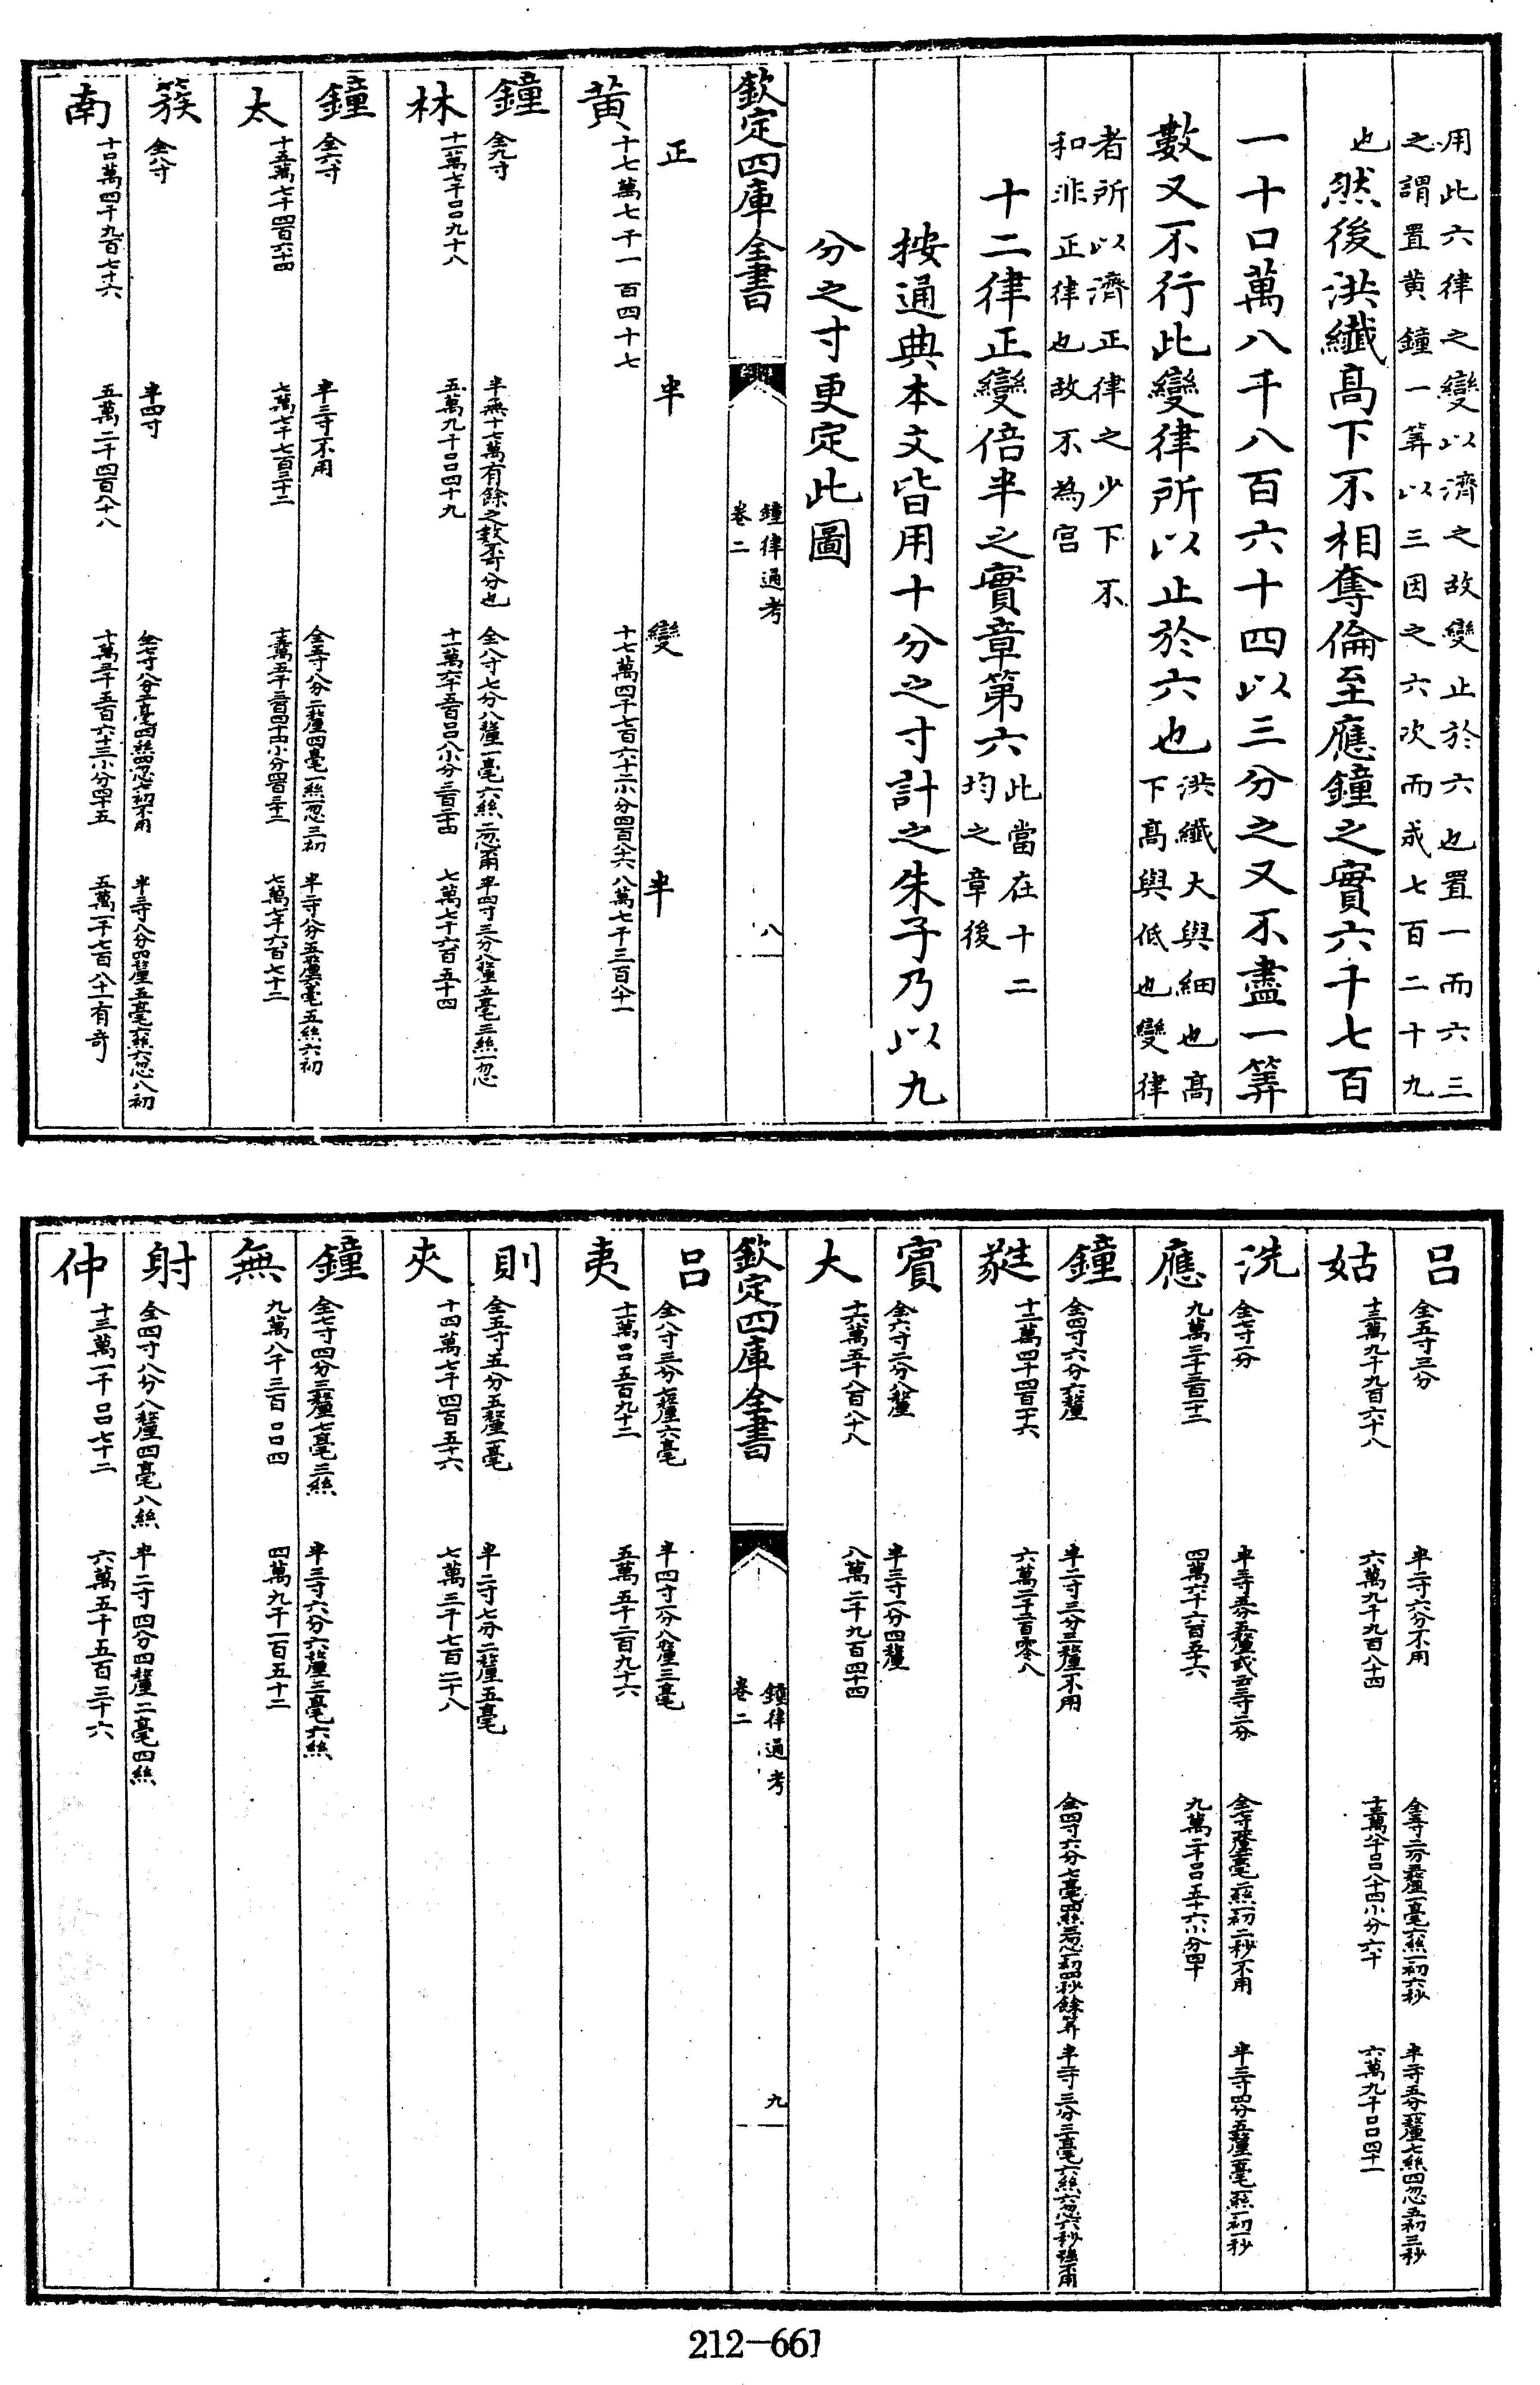 用此六律之變以濟之故變止於六也置一而六三
之謂置黄鐘一筭以三因之六次而成七百二十九
也然後洪纖髙下不相奪倫至應鐘之實六千七百
一十口萬八千八百六十四以三分之又不盡一筭
數又不行此變律所以止於六也洪纖大與細也髙
下髙與低也變律
者所以濟正律之少下不
和非正律也故不為宫
十二律正變倍半之實章第六此當在十二
均之章後
按通典本文皆用十分之寸計之朱子乃以九
分之寸更定此圖
欽定四庫全書
鐘律通考
卷二
八
正 半 變 半
黄 十七萬七千一百四十七 十七萬四千七百六十二小分四百八十六 八萬七千三百八十一
鐘 全九寸 半無十七萬有餘之數奇分也 全八寸七分八釐一毫六絲二忽不用 半四寸三分八釐五毫三絲一忽
林 十一萬八千口九十八 五萬九千口四十九 十一萬六千五百口八小分三百二十四 七萬七千六百五十四
鐘 全六寸 半三寸不用 全五寸八分二釐四毫一絲一忽三初 半二寸八分五釐六毫五絲六初
太 十五萬七千四百六十四 七萬八千七百三十二 十五萬五千三百四十四小分四百三十二 七萬七千六百七十二
簇 全八寸 半四寸 全七寸八分二毫四絲四忽七初不用 半三寸八分四釐五毫六絲六忽八初
南 十口萬四千九百七十六 五萬二千四百八十八 十萬三千五百六十三小分四十五 五萬一千七百八十一有奇
吕 全五寸三分 半二寸六分不用 全五寸二分三釐一毫六絲一初六秒 半二寸五分六釐七絲四忽五初三秒
姑 十三萬九千九百六十八 六萬九千九百八十四 十三萬八千口八十四小分六十 六萬九千口四十一
洗 全七寸一分 半三寸五分五釐或云三寸二分 全七寸一釐二毫二絲一初二秒不用 半三寸四分五釐一毫一絲一初一秒
應 九萬三千三百一十二 四萬六千六百五十六 九萬二千口五十六小分四十
鐘 全四寸六分六釐 半二寸三分三釐不用 全四寸六分七毫四絲三忽一初四秒餘筭 半二寸三分三毫六絲六忽六秒强不用
蕤 十二萬四千四百一十六 六萬二千二百零八
賓 全六寸二分八釐 半三寸一分四釐
大 十六萬五千八百八十八 八萬二千九百四十四
欽定四庫全書
鐘律通考
卷二
九
吕 全八寸三分七釐六毫 半四寸一分八釐三毫
夷 十一萬口五百九十二 五萬五千二百九十六
則 全五寸五分五釐一毫 半二寸七分二釐五毫
夾 十四萬七千四百五十六 七萬三千七百二十八
鐘 全七寸四分三釐七毫三絲 半三寸六分六釐三毫六絲
無 九萬八千三百口四 四萬九千一百五十二
射 全四寸八分八釐四毫八絲 半二寸四分四釐二毫四絲
仲 十三萬一千口七十二 六萬五千五百三十六
212-661